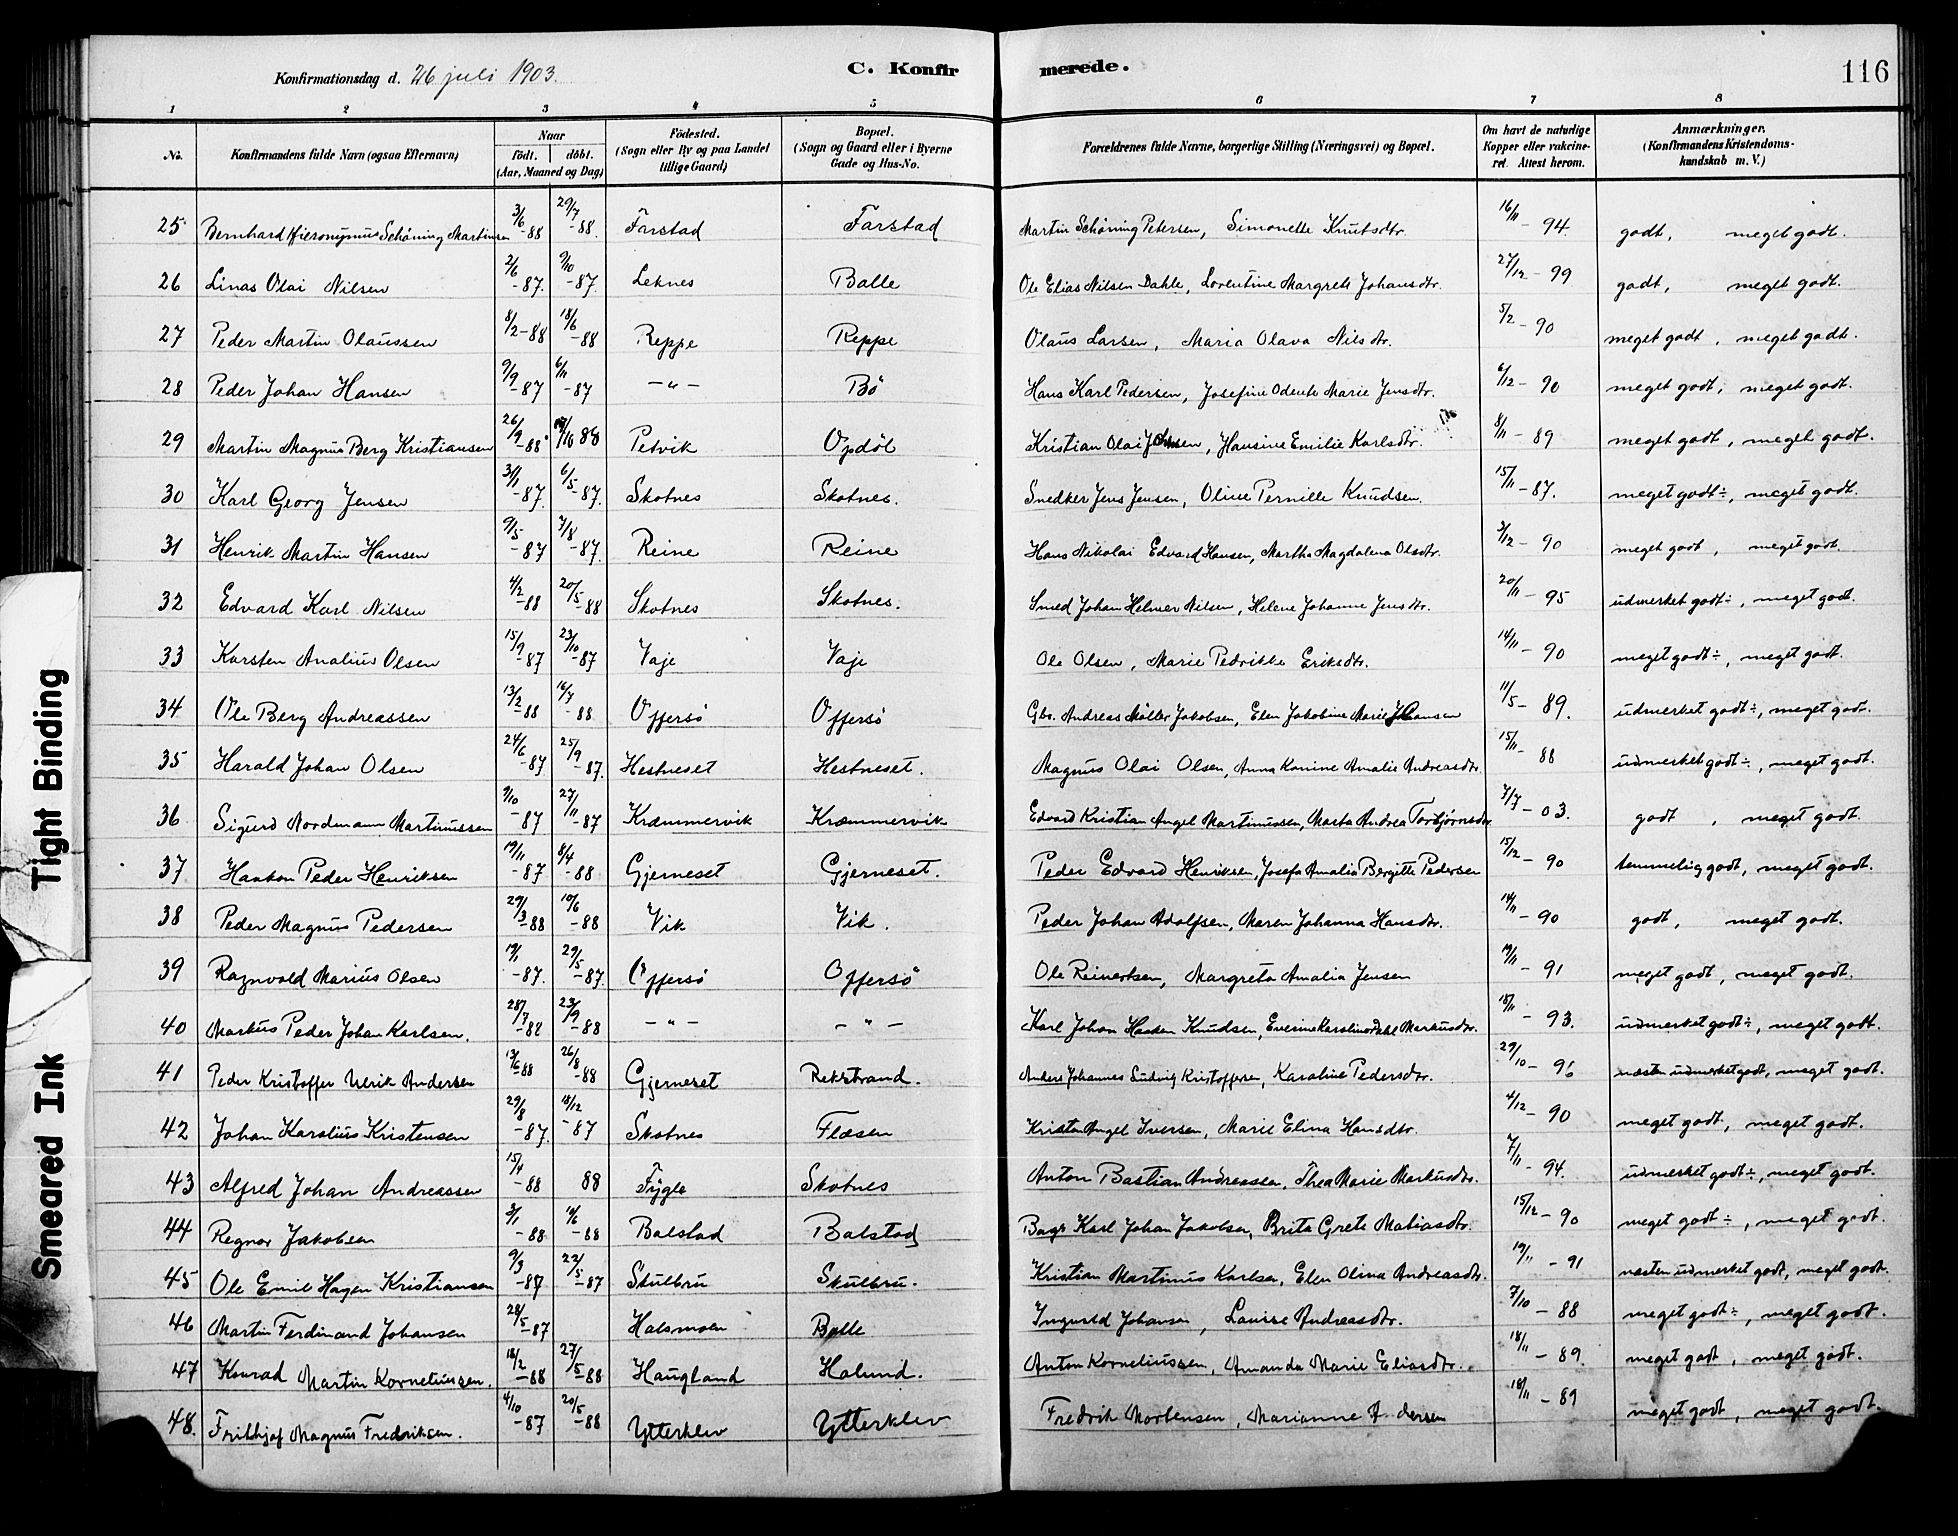 Konfirmationsdag d. 26 juli 1903. C. Konfirmerede. 116
1 2 3 4 5 6 7 8
No. Konfirmandens fulde Navn (ogsaa Efternavn) Naar födt. döbt. (Aar, Maaned og Dag) Födested. (Sogn eller By og paa Landet tillige Gaard) Bopæl. (Sogn og Gaard eller i Byerne Gade og Hus-No. Forældrenes fulde Navne, borgerlige Stilling (Næringsvei) og Bopæl. Om havt de naturlige Kopper eller vakcineret. Attest herom. Anmærkninger. (Konfirmandens Kristendomskundskab m. V.)
25 Bernhard Hieronymus Schöning Martinsen 3/6 -88 29/7 -88. Farstad Farstad Martin Schöning Petersen, Simonette Knutsdtr. 16/11 - 94. godt, meget godt.
26 Linas Olai Nilsen 2/6 -87. 9/10 -87. Leknes Balle Ole Elias Nilsen Dahle, Lorentine Margrete Johansdtr. 27/12 - 99 godt, meget godt.
27 Peder Martin Olaussen 8/2 -88 18/6 -88 Reppe Reppe Olaus Larsen, Maria Olava Nilsdtr. 5/2 - 90 meget godt, meget godt.
28 Peder Johan Hansen 9/9 -87 6/11 -87 -"- Bö Hans Karl Pedersen, Josefine Odente Marie Jensdtr. 6/12 - 90 meget godt, meget godt.
29 Martin Magnus Berg Kristiansen 26/9 -88 /10 88 Petvik Opdöl Kristian Olai, Hansine Emilie Karlsdtr. 8/11 - 89 meget godt, meget godt.
30 Karl Georg Jensen 3/11 -87. 6/5 -87. Skotnes Skotnes. Snedker Jens Jensen, Oline Pernille Knudsen. 15/11 - 87. meget godt ÷, meget godt.
31 Henrik Martin Hansen 9/5 -87 7/8 -87. Reine Reine Hans Nikolai Edvard Hansen, Martha Magdalena Olsdtr. 3/12 - 90 meget godt, meget godt.
32 Edvard Karl Nilsen 4/2 -88 20/5 -88 Skotnes Skotnes. Smed Johan Helmer Nilsen, Helene Johanne Jensdtr. 20/11 - 95 udmerket godt ÷, meget godt.
33 Karsten Analius Olsen 15/9 -87 23/10 -87 Vaje Vaje Ole Olsen, Marie Pedrikke Eriksdtr. 14/11 - 90 meget godt ÷, meget godt.
34 Ole Berg Andreassen 13/2 -88 16/7 -88 Offersö Offersö Gbr. Andreas Möller Jakobsen, Elen Jakobine Marie 11/5 - 89. udmerket godt ÷, meget godt.
35 Harald Johan Olsen 24/6 -87 25/9 -87. Hestneset Hestneset. Magnus Olai Olsen, Anna Konine Amalie Andreasdtr. 15/11 - 88 udmerket godt ÷, meget godt.
36 Sigurd Nordmann Martinussen 9/10 -87 27/11 -87 Kræmmervik Kræmmervik Edvard Kristian Angel Martinussen, Marta Andrea Torbjørnsdtr 7/7 - 03. godt, meget godt.
37 Haakon Peder Henriksen 19/11 -87 8/4 -88 Gjerneset Gjerneset. Peder Edvard Henriksen, Josefa Amalia Bergitte Pedersen 15/12 - 90 temmelig godt, meget godt.
38 Peder Magnus Pedersen 29/3 -88 10/6 -88 Vik Vik. Peder Johan Adolfsen, Maren Johanna Hansdtr. 14/11 - 90 godt, meget godt.
39 Ragnvald Marius Olsen 19/1 -87. 29/5 -87. Offersö Offersö Ole Reinertsen, Margreta Amalia Jensen 19/11 - 91 meget godt, meget godt.
40 Markus Peder Johan Karlsen. 28/7 -88 23/9 -88 -"- -"- Karl Johan Haakon Knudsen, Everine Markusdtr. 18/11 - 93. udmerket godt ÷, meget godt.
41 Peder Kristoffer Ulrik Andersen 13/6 -88 26/8 -88 Gjerneset Rekstrand. Anders Johannes Ludvig Kristoffersen, Karoline Pedersdtr. 29/10 - 96 næsten udmerket godt, meget godt.
42 Johan Karolius Kristensen 29/8 -87. 18/12 -87 Skotnes Flæsen Kristen Angel Iversen, Marie Elina Hansdtr. 4/12 - 90 meget godt, meget godt.
43 Alfred Johan Andreassen 15/4 -88 88 Fygle Skotnes Anton Bastian Andreassen, Thea Marie Markusdtr. 7/11 - 94. udmerket godt ÷, meget godt.
44 Regnor Jakobsen 3/1 -88 10/6 -88 Balstad Balstad Karl Johan Jakobsen, Brita Grete Matiasdtr. 15/12 - 90 meget godt ÷, meget godt.
45 Ole Emil Hagen Kristiansen 9/3 -87 22/5 -87 Skulbru Skulbru. Kristian Martinus Karlsen, Elen Olina Andreasdtr. 19/11 - 91 næsten udmerket godt, meget godt.
46 Martin Ferdinand Johansen 28/5 -87 Halsmoen Balle Ingvald Johansen, Louise Andreasdtr. 7/10 - 88 meget godt ÷, meget godt.
47 Konrad Martin Korneliussen. 18/2 -88 27/5 -88 Haugland Holund. Anton Korneliussen, Amanda Marie Eliasdtr. 18/11 - 89. meget godt, meget godt.
48. Frithjof Magnus Fredriksen. 4/10 -87 20/5 -88 Ytterklev Ytterklev Fredrik Mortensen, Marianne 18/11 - 89 meget godt, meget godt.
Tight Binding
Smeared Ink